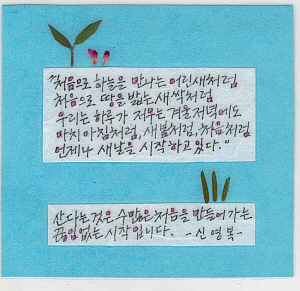 "처음으로 하늘을 만나는 어린새처럼
처음으로 땅을 밟는 새싹처럼
우리는 하루가 저무는 겨울저녁에도
마치 아침처럼, 새봄처럼, 처음처럼
언제나 새날을 시작하고 있다."
산다는것은 수많은 처음을 만들어 가는
끊임없는 시작입니다. -신영복-